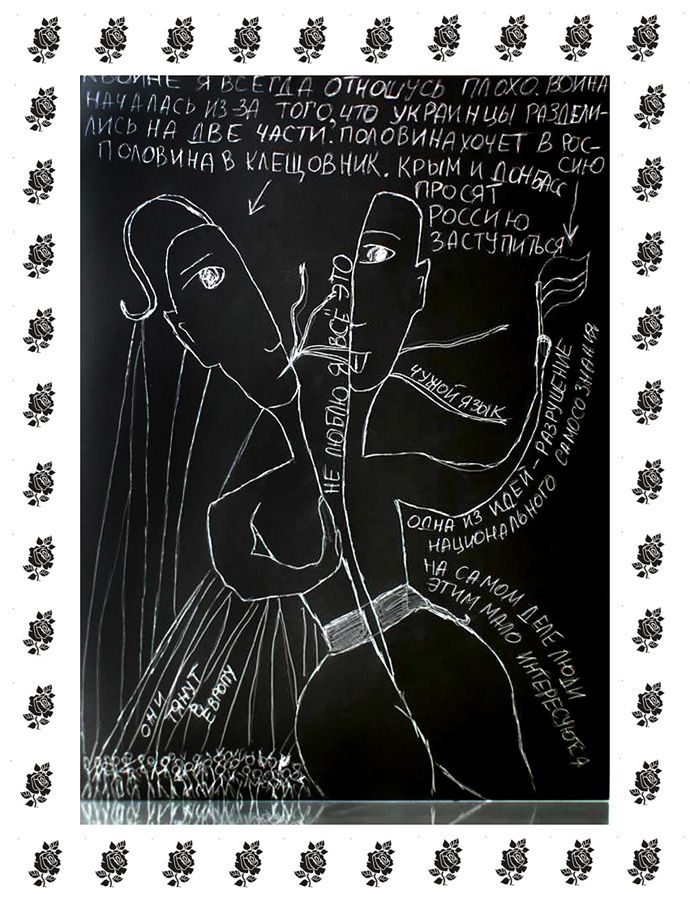 К ВОЙНЕ Я ВСЕГДА ОТНОШУСЬ ПЛОХО. ВОЙНА
НАЧАЛАСЬ ИЗ-ЗА ТОГО, ЧТО УКРАИНЦЫ РАЗДЕЛИ-
ЛИСЬ НА ДВЕ ЧАСТИ. ПОЛОВИНА ХОЧЕТ В РОС-
СИЮ
ПОЛОВИНА В КЛЕЩОВНИК. КРЫМ И ДОНБАСС
ПРОСЯТ
РОССИЮ
ЗАСТУПИТЬСЯ
НЕ ЛЮБЛЮ Я ВСЁ ЭТО
ЧУЖОЙ ЯЗЫК
ОДНА ИЗ ИДЕЙ - РАЗРУШЕНИЕ
НАЦИОНАЛЬНОГО САМОСОЗНАНИЯ
НА САМОМ ДЕЛЕ ЛЮДИ
ЭТИМ МАЛО ИНТЕРЕСУЮТСЯ
ОНИ
ТЯНУТ
В
ЕВРОПУ